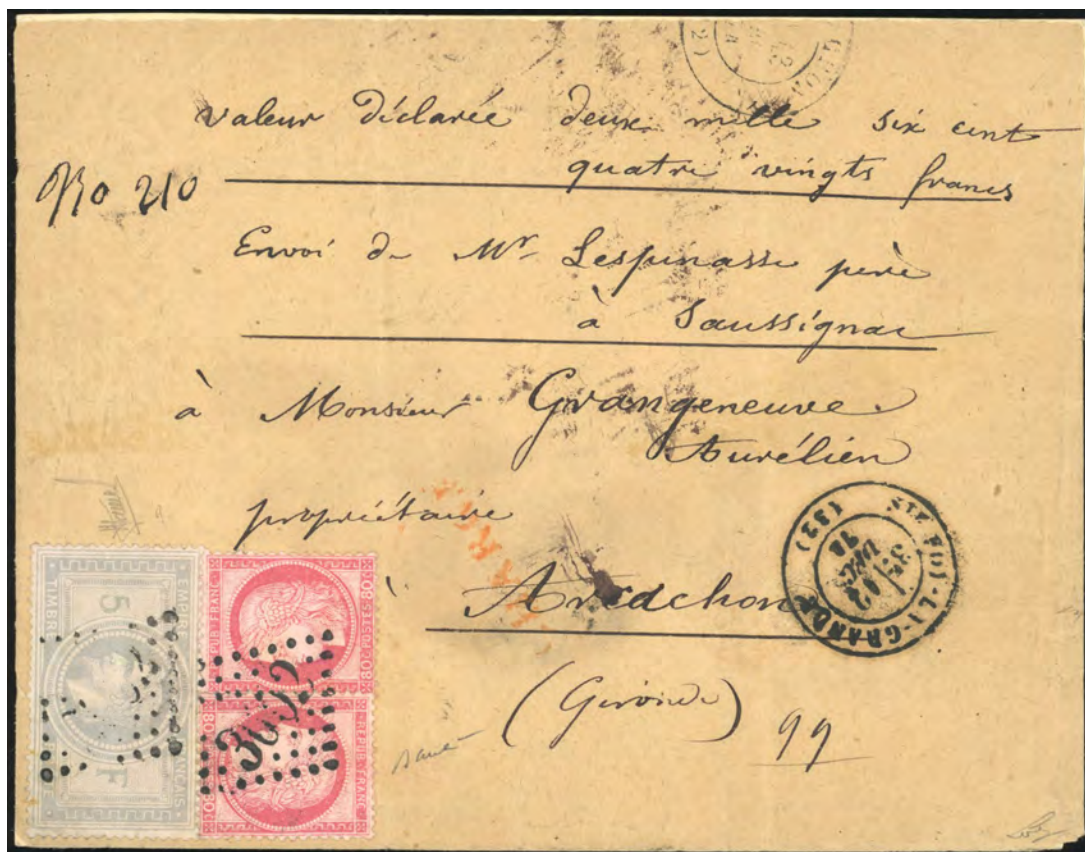 valeur déclarée deux mille six cent
quatre vingts francs
No 210
Envoi de Mr Lespinasse père
à Saussignac
à Monsieur Grangeneuve
Aurélien
propriétaire
à Arcachon
(Gironde)
99
STE FOI-LA-GRANDE (32)
DEC
74
EMPIRE FRANÇAIS
TIMBRE
5 F
REPUB FRANC
80 C POSTES 80 C
REPUB FRANC
80